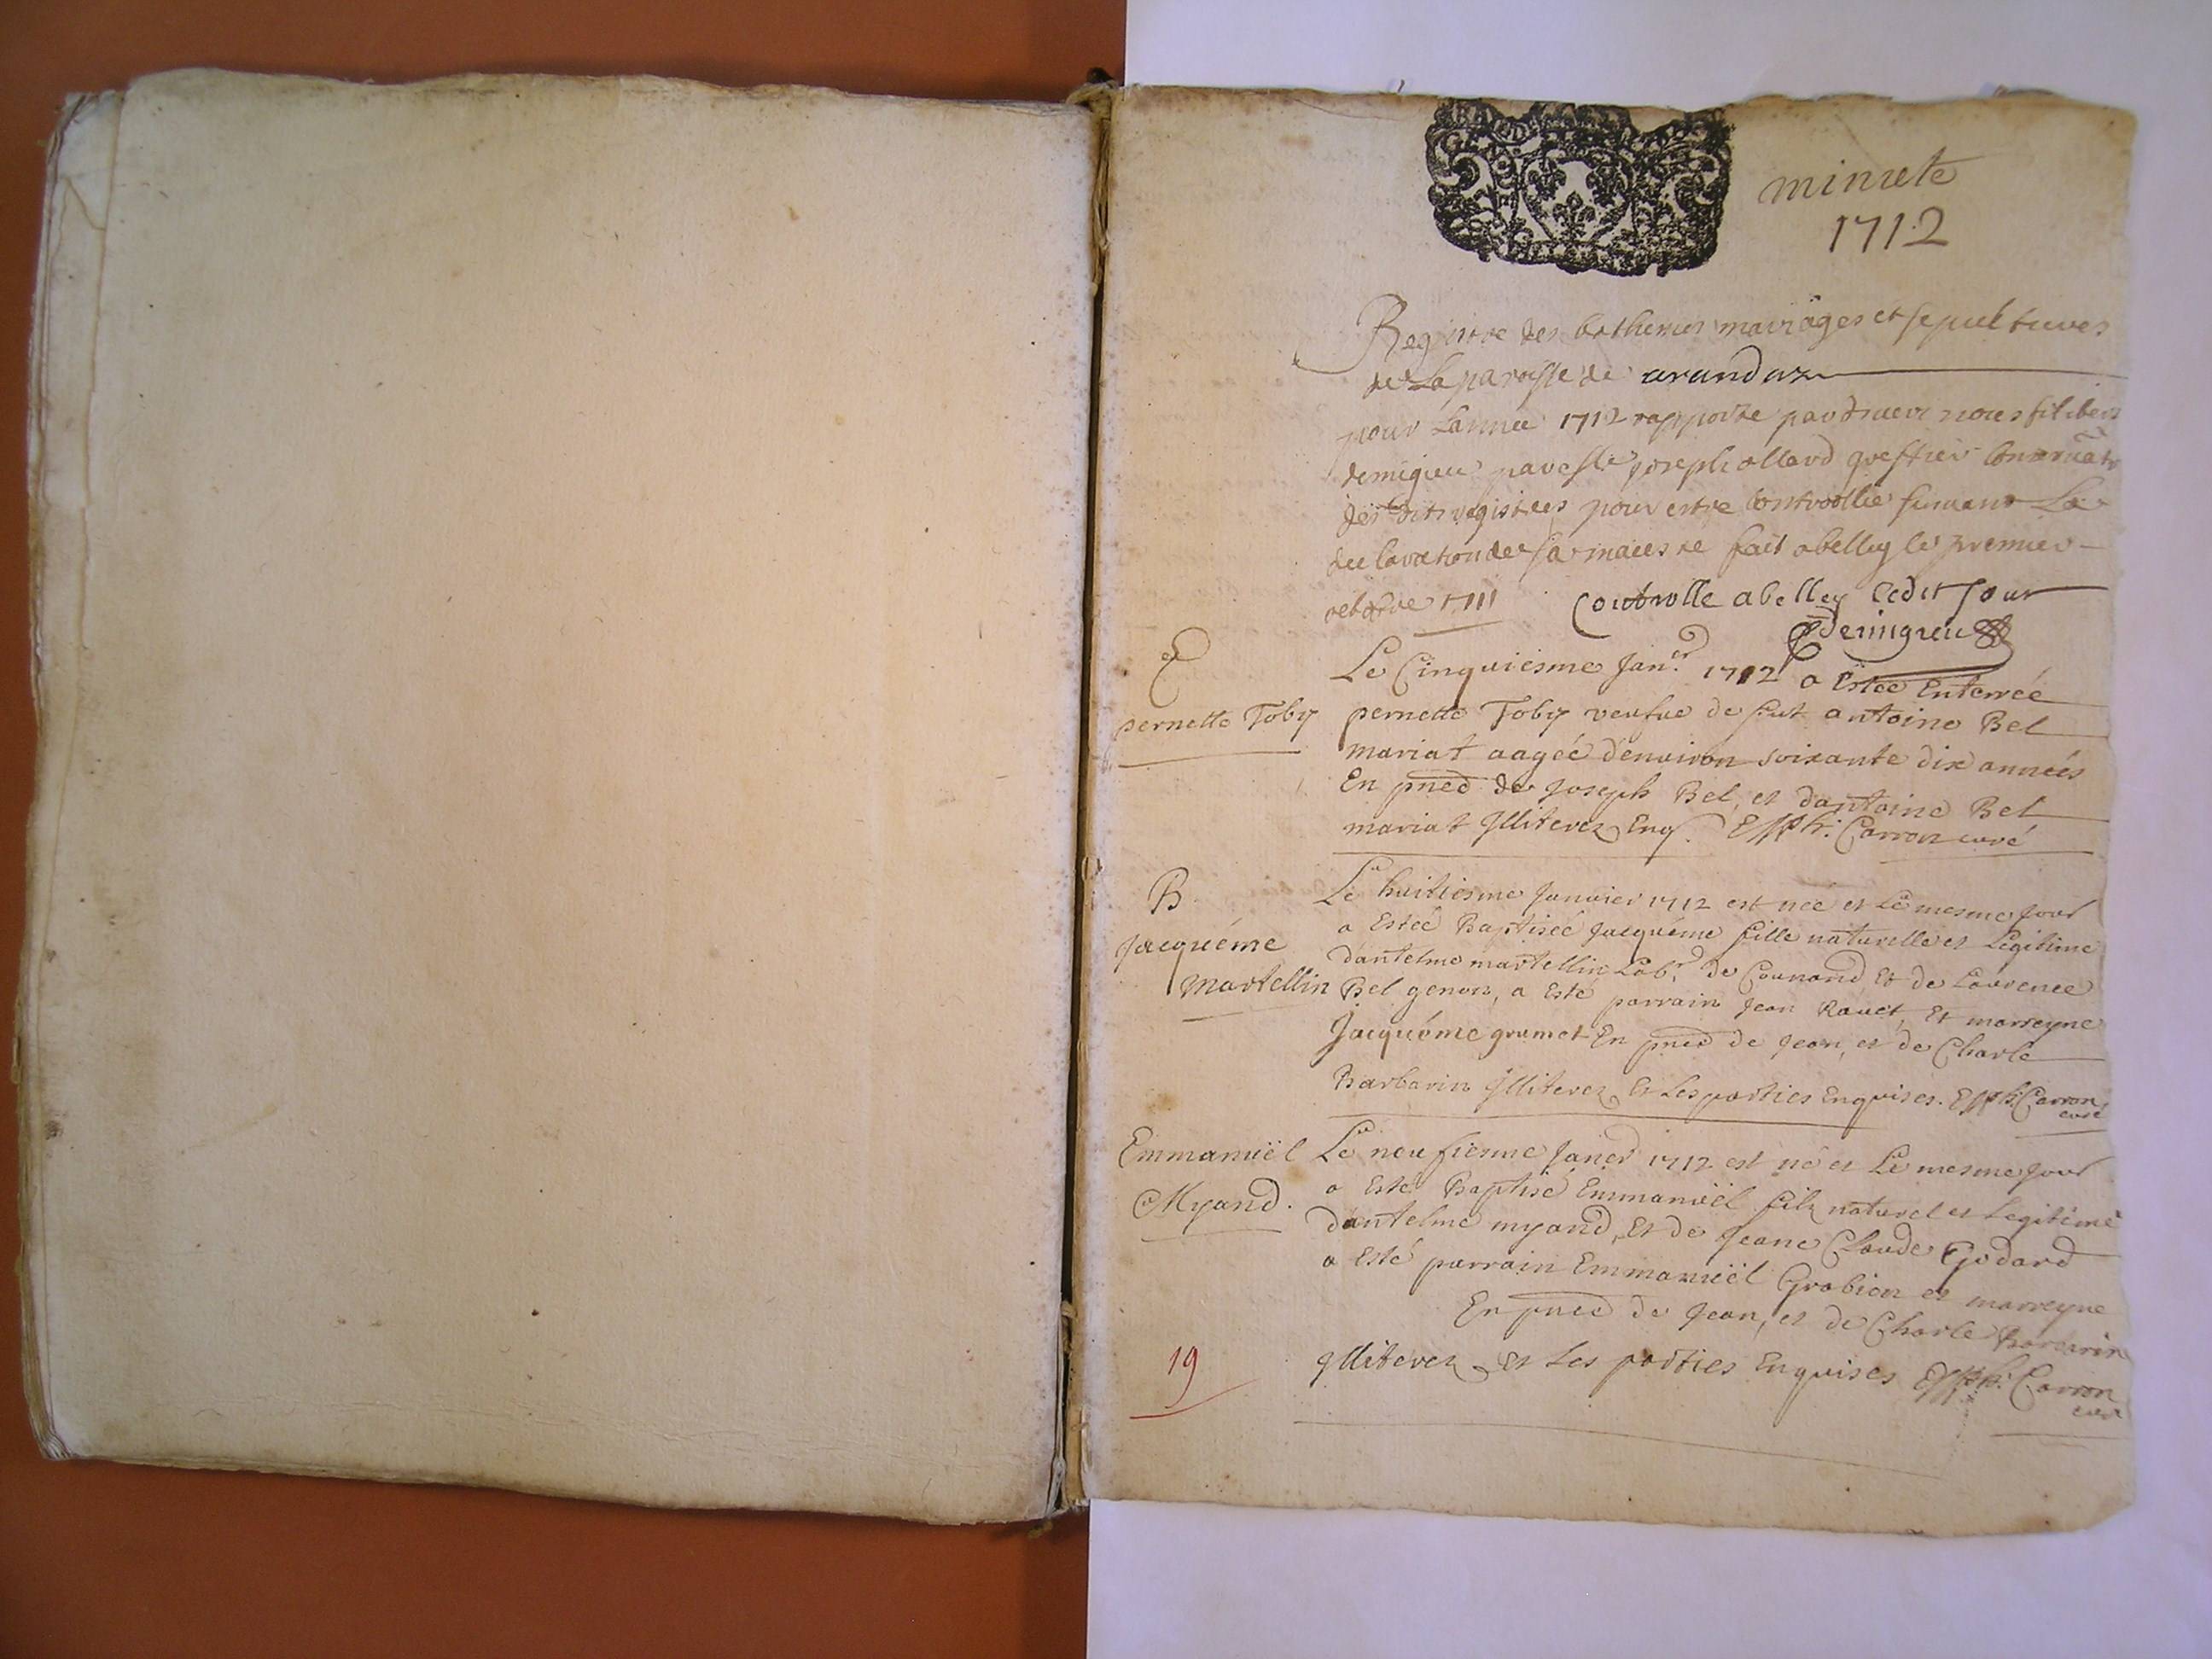 minute
1712
Registre des bathemes mariages et sepultures
de La paroisse de arandaz
pour Lannee 1712 rapporte par nous
demigieu par allard greffier
desdits registres pour estre controlle suivant La
declaration de sa fait abelley le premier
octobre 1711 Controlle abelley ledit Jour
demigieu
E
pernette Toby
Le Cinquiesme Jan.er 1712 a Estée Enterrée
pernette Toby veufue de fut antoine Bel
mariat aagée d'enuiron soixante dix années
En pned de Joseph Bel, et d'antoine Bel
mariat Jlliterez Enq. Carron curé
B
Jacquéme
Martellin
Le huitiesme Januier 1712 est née et Le mesme Jour
a Estée Baptisée Jacquéme fille naturelle et Legitime
d'antelme martellin Lab.r de Counand, Et de Laurence
Bel genon, a Esté parrain Jean Rauet, Et marreyne
Jacquéme grumet En pned de Jean, et de Charle
Barbarin Jlliterez Et Les parties Enquises. Carron
curé
Emmanuël
Myand.
Le neufiesme Janer 1712 est né et Le mesme Jour
a Esté Baptisé Emmanuël filz naturel et Legitime
d'antelme myand, Et de Jeane Claude Godard
a Esté parrain Emmanuël Grobion et marreyne
En pned de Jean, et de Charle Barbarin
Jlliterez Et Les parties Enquises Carron
curé
19